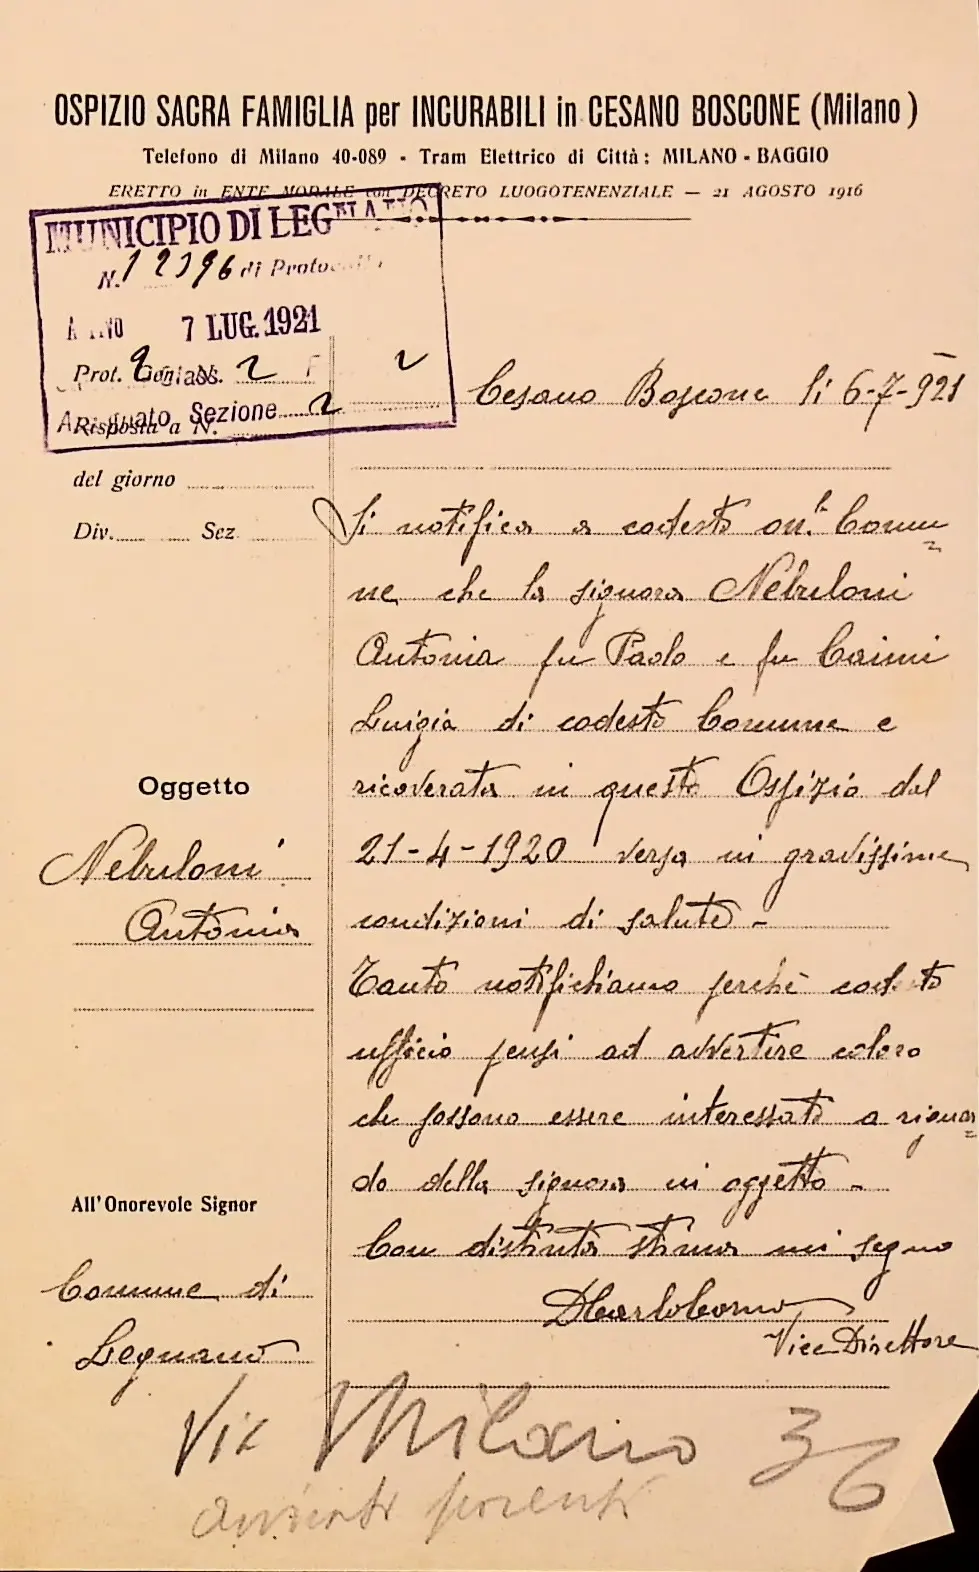 OSPIZIO SACRA FAMIGLIA per INCURABILI in CESANO BOSCONE (Milano)
Telefono di Milano 40-089 - Tram Elettrico di Città: MILANO - BAGGIO
ERETTO in ENTE MORALE con DECRETO LUOGOTENENZIALE — 21 AGOSTO 1916
MUNICIPIO DI LEGNANO
N. 12396 di Protocollo
7 LUG. 1921
Prot. Gen. N. 2
Class. 2
Sezione 2
Risposta a N.
del giorno
Div. Sez.
Cesano Boscone li 6-7-921
Si notifica a codesto on. Comu=
ne che la signora Nebuloni
Antonia fu Paolo e fu Caimi
Luigia di codesto Comune e
ricoverata in questo Ospizio dal
21-4-1920 versa in gravissime
condizioni di salute -
Tanto notifichiamo perchè codesto
ufficio pensi ad avvertire coloro
che possono essere interessati a riguar=
do della signora in oggetto -
Con distinta stima mi segno
D Carlo Como
Vice Direttore
Oggetto
Nebuloni
Antonia
All' Onorevole Signor
Comune di
Legnano
Via Milano 36
parenti